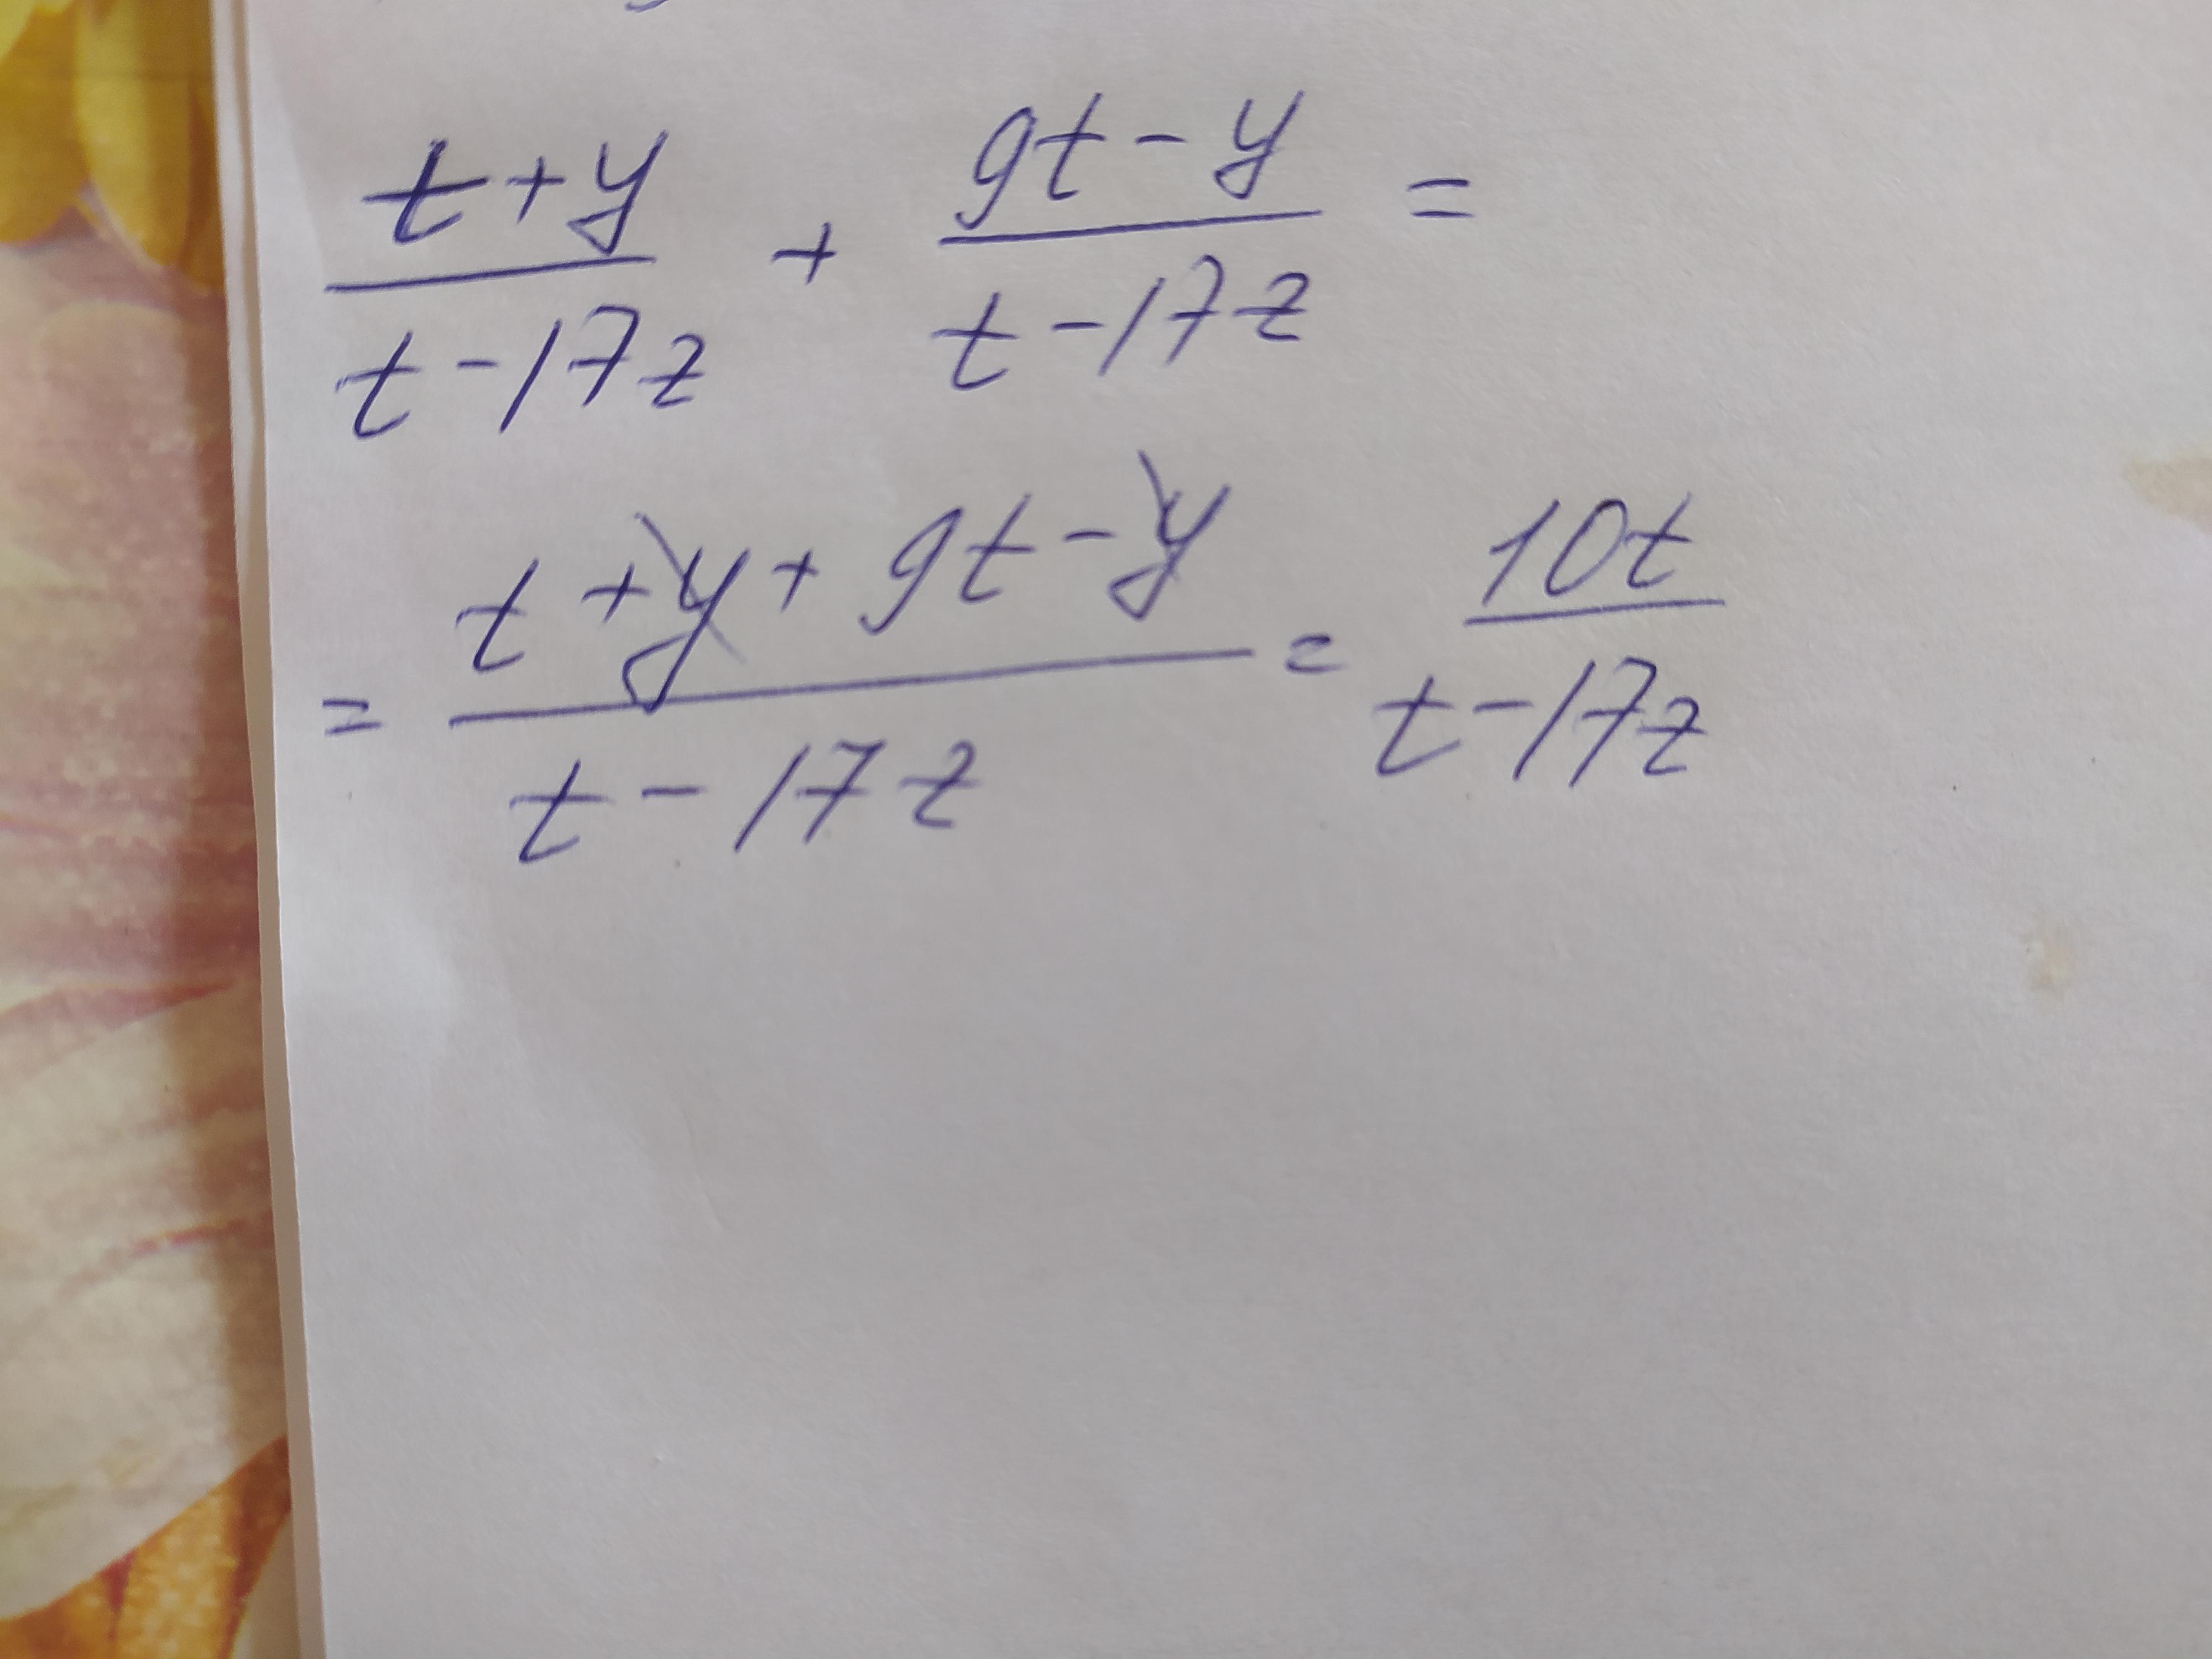 t+y/t-17z + 9t-y/t-17z =
= t+y+9t-y/t-17z = 10t/t-17z